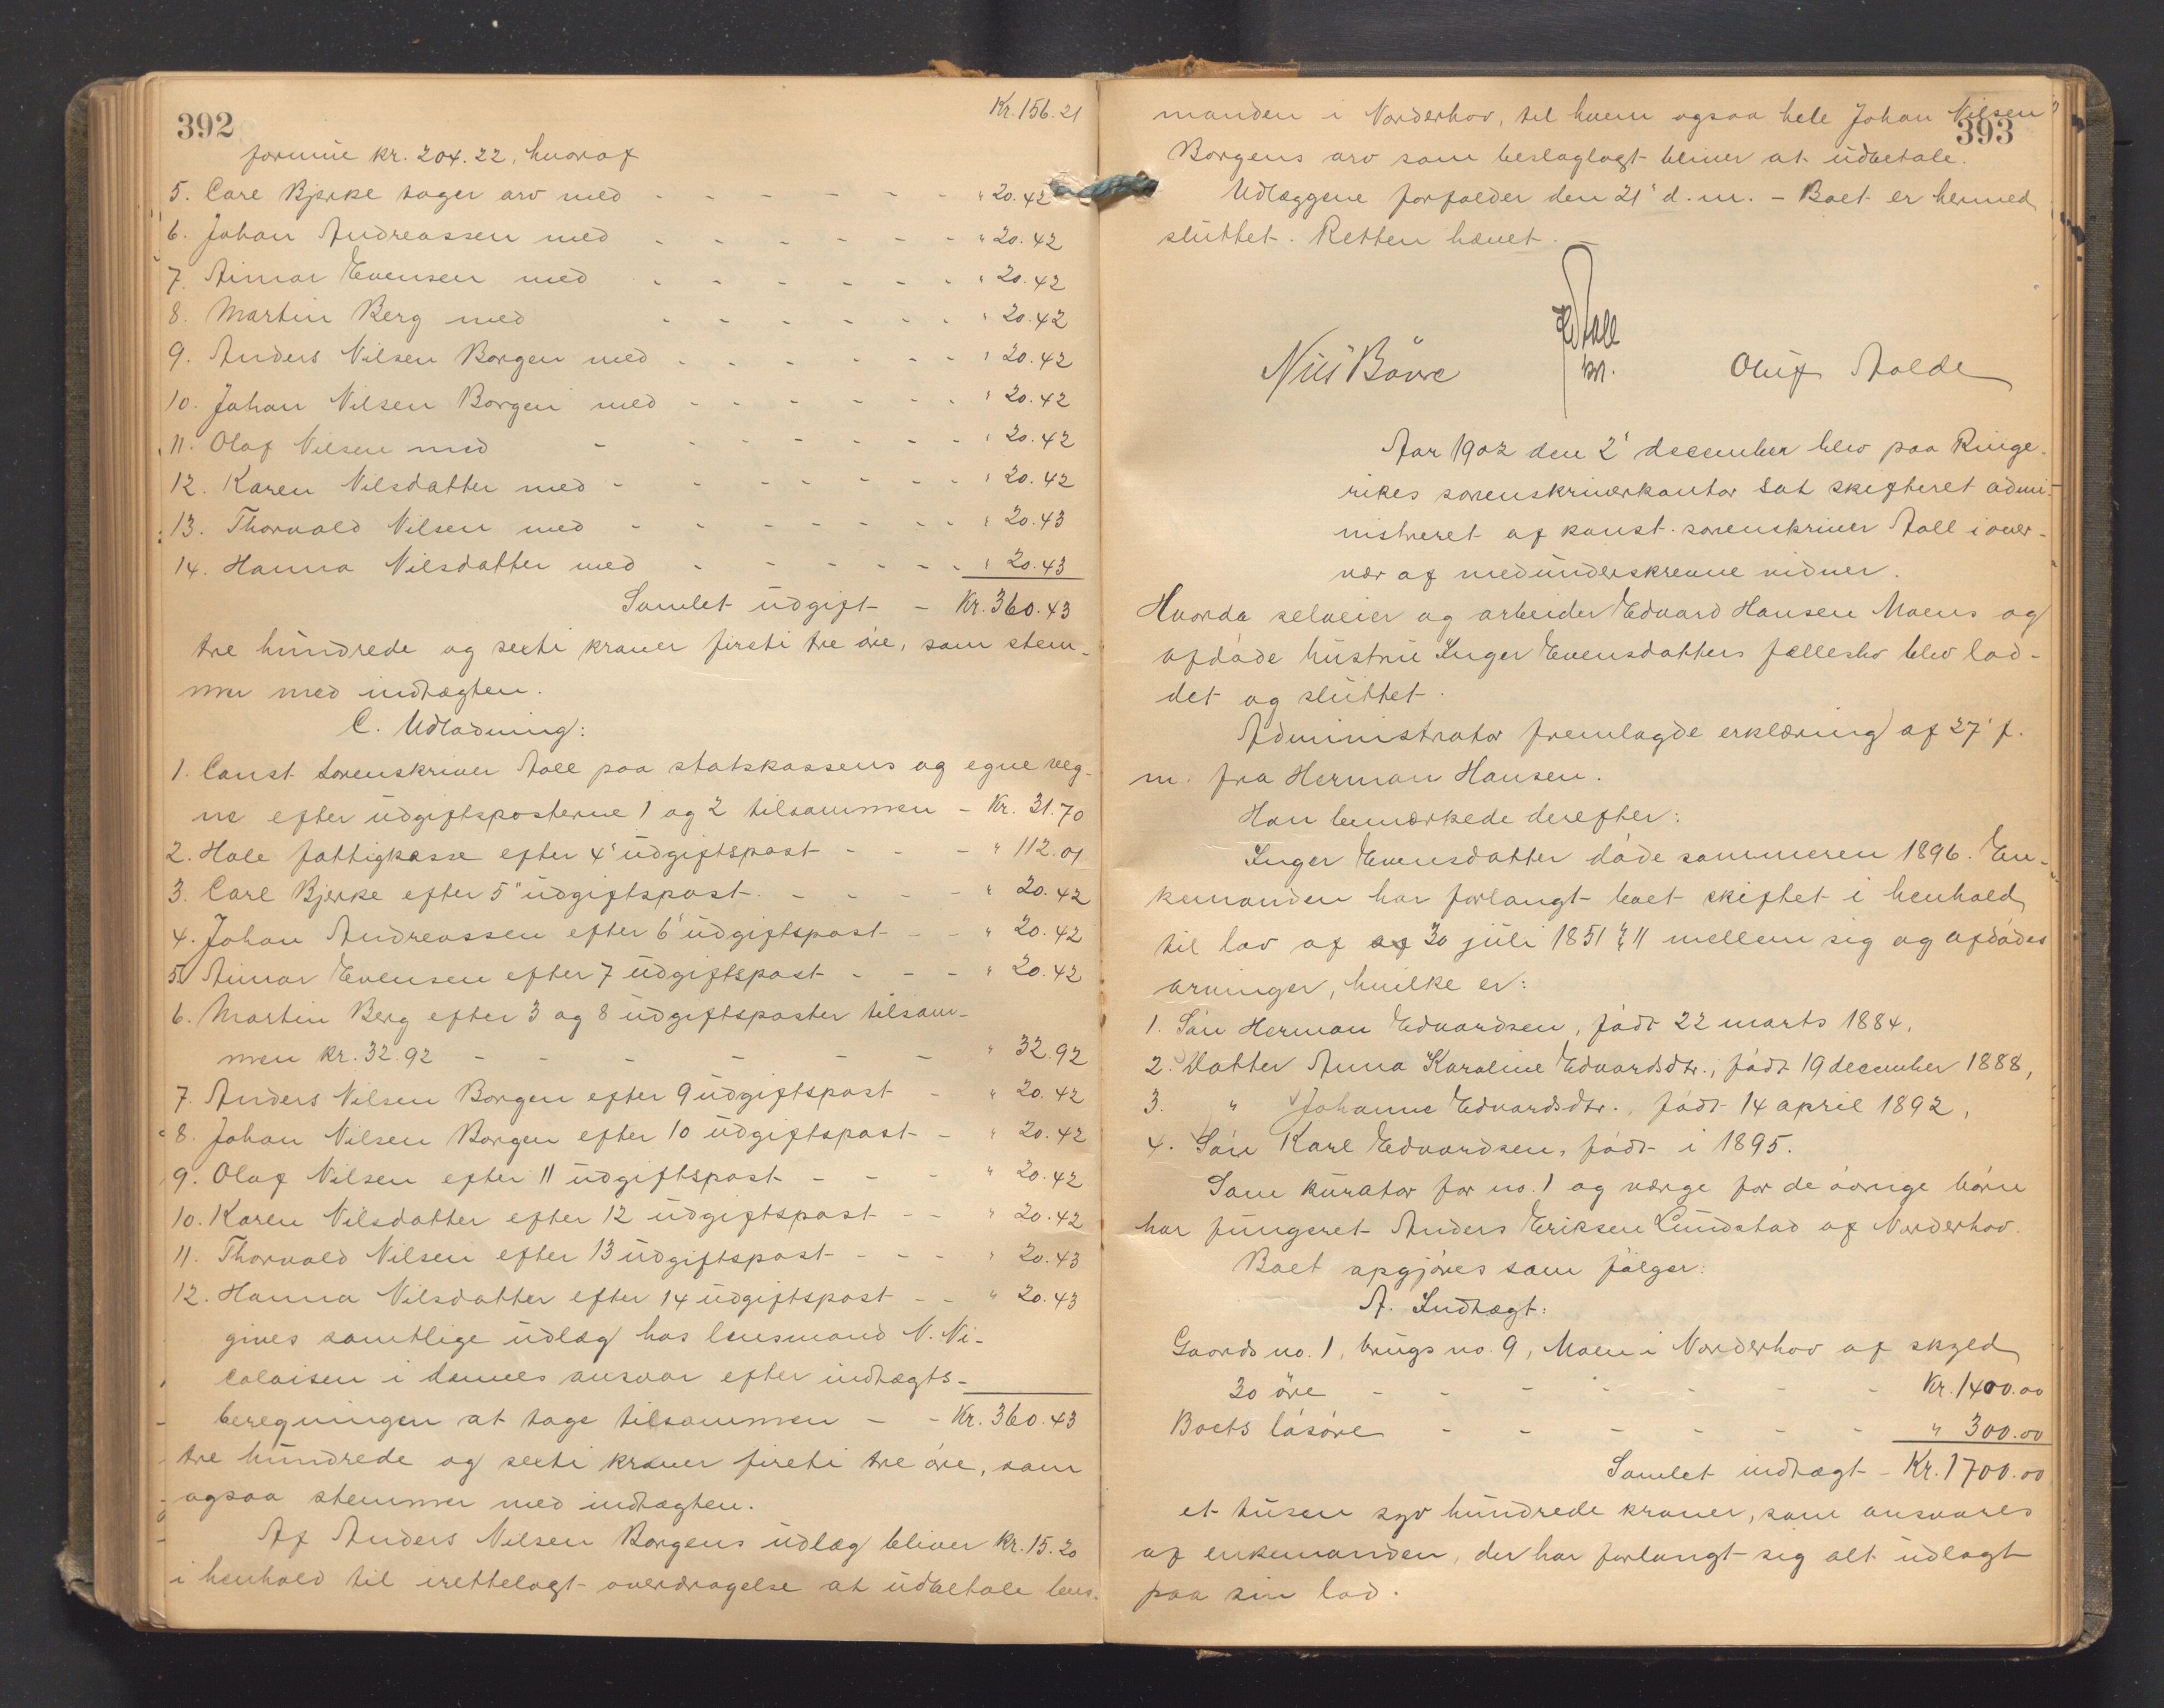 392
Kr. 156.21
formue kr. 204.22, hvoraf
5. Carl Bjerke tager arv med - - - - - - " 20.42
6. Johan Andreassen med - - - - - - " 20.42
7. Aimar Evensen med - - - - - - " 20.42
8. Martin Berg med - - - - - - " 20.42
9. Anders Nilsen Borgen med - - - - - - " 20.42
10. Johan Nilsen Borgen med - - - - - - " 20.42
11. Olaf Nilsen med - - - - - - " 20.42
12. Karen Nilsdatter med - - - - - - " 20.42
13. Thorvald Nilsen med - - - - - - " 20.43
14. Hanna Nilsdatter med - - - - - " 20.43
Samlet udgift - Kr. 360.43
tre hundrede og sexti kroner fireti tre øre, som stem-
mer med indtægten.
C. Udlodning:
1. Const. sorenskriver Aall paa statskassens og egne veg-
ne efter udgiftsposterne 1 og 2 tilsammen - Kr. 31.70
2. Hole fattigkasse efter 4' udgiftspost - - - " 112.01
3. Carl Bjerke efter 5" udgiftspost - - - - " 20.42
4. Johan Andreassen efter 6' udgiftspost - - " 20.42
5. Aimar Evensen efter 7 udgiftspost - - - " 20.42
6. Martin Berg efter 3 og 8 udgiftsposter tilsam-
men kr. 32.92 - - - - - - " 32.92
7. Anders Nilsen Borgen efter 9 udgiftspost - " 20.42
8. Johan Nilsen Borgen efter 10 udgiftspost - " 20.42
9. Olaf Nilsen efter 11 udgiftspost - - - " 20.42
10. Karen Nilsdatter efter 12 udgiftspost - - " 20.42
11. Thorvald Nilsen efter 13 udgiftspost - - - " 20.43
12. Hanna Nilsdatter efter 14 udgiftspost - - " 20.43
gives samtlige udlæg hos lensmand N. Ni-
colaisen i dennes ansvar efter indtægts-
beregningen at tage tilsammen - - Kr. 360.43
tre hundrede og sexti kroner fireti tre øre, som
ogsaa stemmer med indtægten.
Af Anders Nilsen Borgens udlæg bliver kr. 15.20
i henhold til irettelagt overdragelse at udbetale lens-
393
manden i Norderhov, til hvem ogsaa hele Johan Nilsen
Borgens arv som beslaglagt bliver at udbetale.
Udlæggene forfalder den 21' d. m. - Boet er hermed
sluttet. Retten hævet. -
Aall
Nils Bøvre
Oluf Aalde
Aar 1902 den 2' december blev paa Ringe-
rikes sorenskriverkontor sat skifteret admi-
nistreret af konst. sorenskriver Aall i over-
vær af medunderskrevne vidner.
Hvorda selveier og arbeider Edvard Hansen Moens og
afdøde hustru Inger Evensdatters fællesbo blev lod-
det og sluttet.
Administrator fremlagde erklæring af 27' f.
m. fra Herman Hansen.
Han bemærkede derefter:
Inger Evensdatter døde sommeren 1896. En-
kemanden har forlangt boet skiftet i henhold
til lov af af 30 juli 1851 § 11 mellem sig og afdødes
arvinger, hvilke er:
1. Søn Herman Edvardsen, født 22 marts 1884,
2. Datter Anna Karoline Edvardsdtr., født 19 december 1888,
3. " Johanne Edvardsdtr., født 14 april 1892,
4. Søn Karl Edvardsen, født i 1895.
Som kurator for no. 1 og værge for de øvrige børn
har fungeret Anders Eriksen Lundstad af Norderhov.
Boet opgjøres som følger:
A. Indtægt:
Gaards no. 1, brugs no. 9, Moen i Norderhov af skyld
30 øre - - - - - - - Kr. 1400.00
Boets løsøre - - - - - - " 300.00
Samlet indtægt - Kr. 1700.00
et tusen syv hundrede kroner, som ansvares
af enkemanden, der har forlangt sig alt udlagt
paa sin lod.